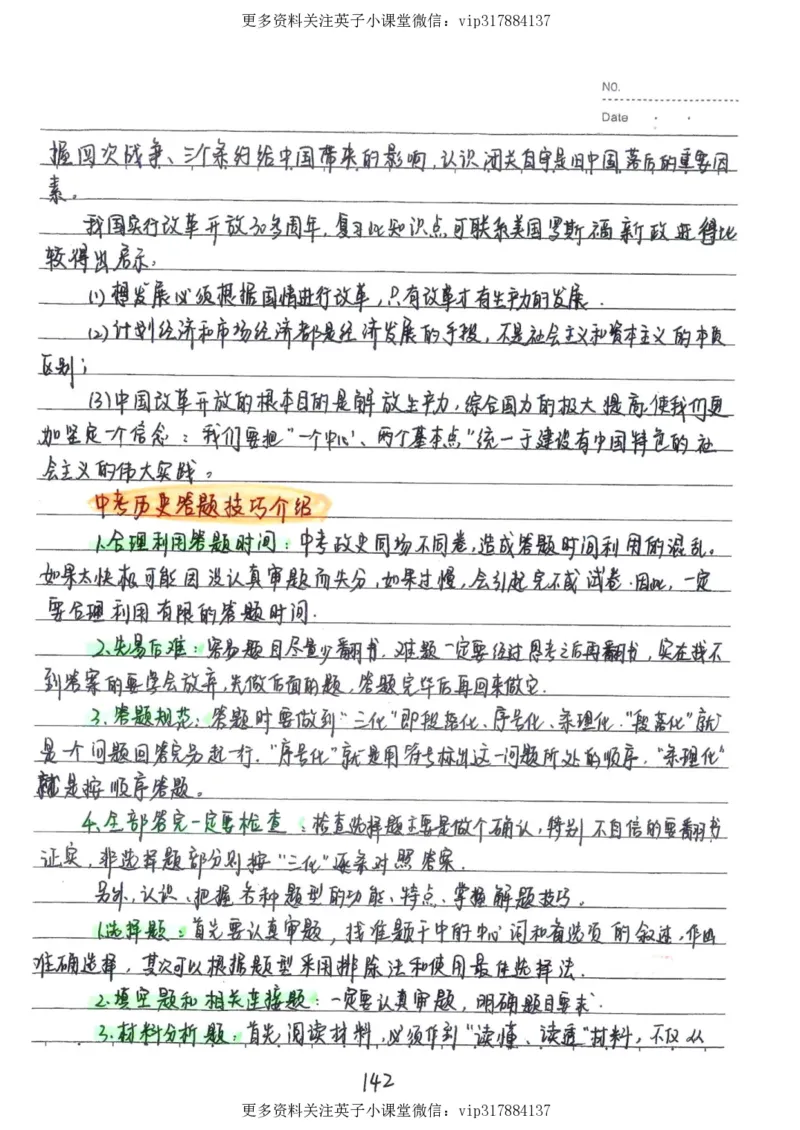 更多资料关注英子小课堂微信：vip317884137
NO.
Date
握四次战争、三个条约给中国带来的影响，认识闭关自守是旧中国落后的重要因
素。
我国实行改革开放30多周年，复习此知识点可联系美国罗斯福新政进行比
较得出启示：
(1)想发展必须根据国情进行改革，只有改革才有生产力的发展．
(2)计划经济和市场经济都是经济发展的手段，不是社会主义和资本主义的本质
区别；
(3)中国改革开放的根本目的是解放生产力，综合国力的极大提高，使我们更
加坚定一个信念：我们要把"一个中心、两个基本点"统一于建设有中国特色的社
会主义的伟大实践。
中考历史答题技巧介绍
1.合理利用答题时间：中考政史同场不同卷，造成答题时间利用的混乱。
如果太快极可能因没认真审题而失分，如果过慢，会引起完不成试卷．因此，一定
要合理利用有限的答题时间．
2.先易后难：容易题目尽量少翻书．难题一定要经过思考之后再翻书，实在找不
到答案的要学会放弃，先做后面的题，答题完毕后再回来做它．
3.答题规范：答题时要做到"三化"即段落化、序号化、条理化．"段落化"就
是一个问题回答完另起一行．"序号化"就是用符号标出这一问题所处的顺序．"条理化"
就是按顺序答题。
4.全部答完一定要检查：检查选择题主要是做个确认，特别不自信的要翻书
证实，非选择题部分则按"三化"逐条对照答案．
另外，认识、把握各种题型的功能、特点、掌握解题技巧。
1.选择题：首先要认真审题，找准题干中的中心词和备选项的叙述，作出
准确选择，其次可以根据题型采用排除法和使用最佳选择法．
2.填空题和相关连接题：一定要认真审题，明确题目要求．
3.材料分析题：首先阅读材料，必须作到"读懂、读透"材料，不仅从
142
更多资料关注英子小课堂微信：vip317884137